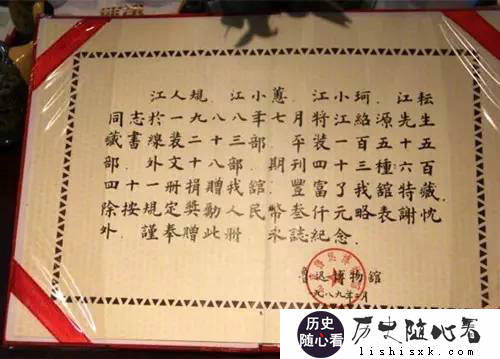 江人規、江小蕙、江小珂、江耘
同志於一九八八年七月特江紹源先生
藏書線装二十三部、平装一百五十五
部、外文十八部、期刊四十三種六百
四十一冊捐贈我舘、豐富了我舘特藏、
除按規定獎勵人民幣叁仟元略表謝忱
外、謹奉贈此冊、永誌紀念。
魯迅博物舘
一九八九年二月
历史
随心看
历史随心看
lishisxk.com